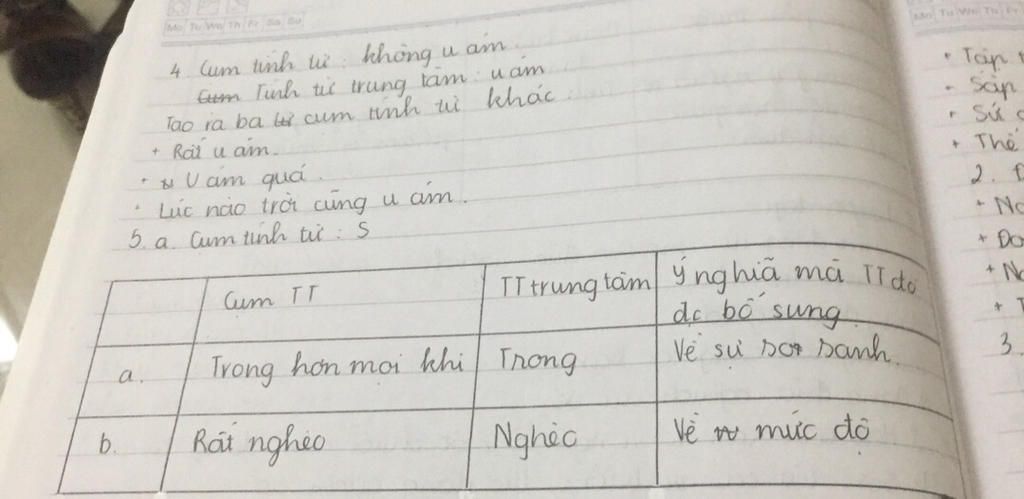 Mo Tu We Th Fr Sa Su
4 Cụm tính từ : không u ám.
Cụm Tính từ trung tâm : u ám
Tạo ra ba từ cụm tính từ khác.
+ Rất u ám.
+ U ám quá.
+ Lúc nào trời cũng u ám.
5. a. Cụm tính từ : S
Cụm TT | TT trung tâm | Ý nghĩa mà TT đó đc bổ sung
a. | Trong hơn mọi khi | Trong | Về sự so sánh.
b. | Rất nghèo | Nghèo | Về mức độ
Mo Tu We Th Fr
+ Tập
- Sáp
+ Sứ
+ Thẻ
2.
+ No
+ Do
+ No
+
3.